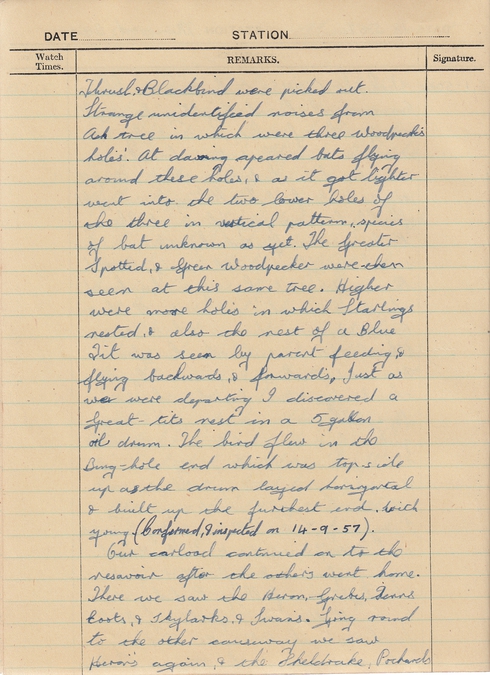 DATE STATION
Watch Times. REMARKS. Signature.
Thrush, & Blackbird were picked out.
Strange unidentified noises from
Ash tree in which were three Woodpeckers
holes. At dawning apeared bats flying
around these holes, & as it got lighter
went into the two lower holes of
the three in vertical pattern, species
of bat unknown as yet. The Greater
Spotted, & Green Woodpecker were then
seen at this same tree. Higher
were more holes in which Starlings
nested, & also the nest of a Blue
Tit was seen by parent feeding, &
flying backwards, & forwards, Just as
we were departing I discovered a
Great-tits nest in a 5 gallon
oil drum. The bird flew in the
Bung-hole end which was top side
up as the drum layed horizontal
& built up the furthest end, with
young (Conformed, & inspected on 14-9-57).
Our carload continued on to the
resavoir after the others went home.
There we saw the Heron, Grebes,
Coots, & Skylarks, & Swans. round
to the other causeway we saw
Heron's again, & the Sheldrake, Pochards